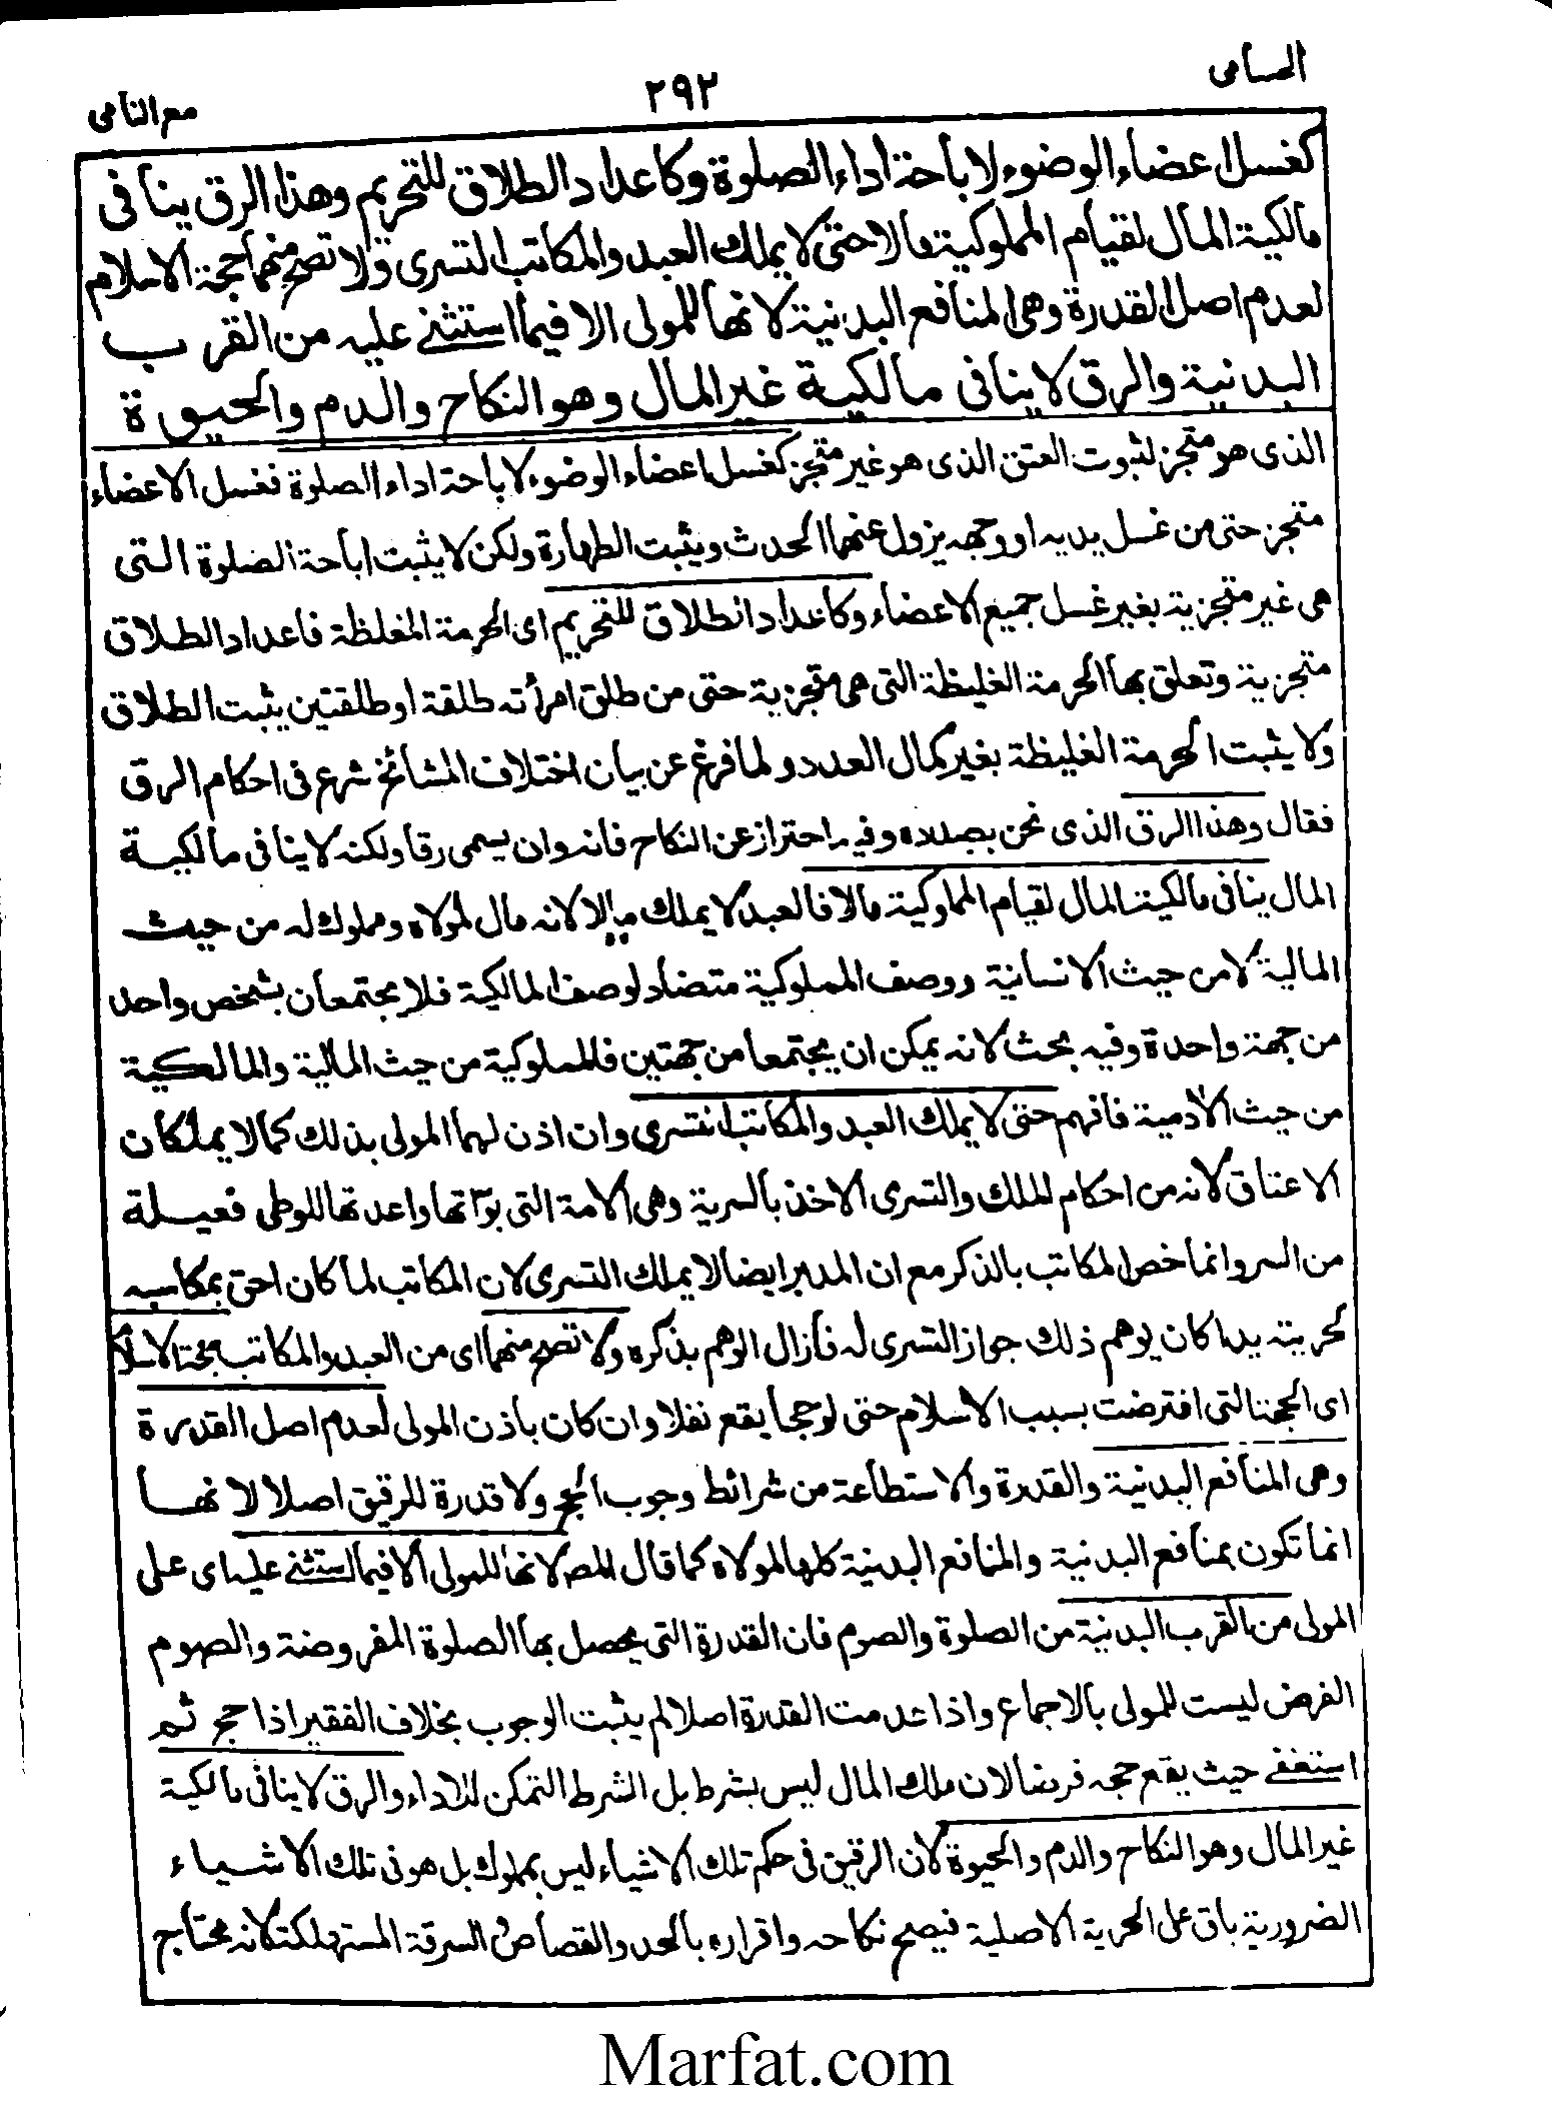 الحسامى
٢٩٢
مع النامى
كغسل اعضاء الوضوء لاباحة اداء الصلوة وكاعداد الطلاق للتحريم وهذا الرق ينافى
مالكية المال لقيام المملوكية مالا حتى لا يملك العبد والمكاتب التسرى ولا تصح منهما حجة الاسلام
لعدم اصل القدرة وهى المنافع البدنية لانها للمولى الا فيما استثنى عليه من القرب
البدنية والرق لا ينافى مالكية غير المال وهو النكاح والدم والحيوة
الذى هو متجز لثبوت العتق الذى هو غير متجز كغسل اعضاء الوضوء لاباحة اداء الصلوة فغسل الاعضاء
متجز حتى من غسل يديه او وجهه يزول عنهما الحدث ويثبت الطهارة ولكن لا يثبت اباحة الصلوة التى
هى غير متجزية بغير غسل جميع الاعضاء وكاعداد الطلاق للتحريم اى الحرمة المغلظة فاعداد الطلاق
متجزية وتعلق بها الحرمة الغليظة التى هى متجزية حتى من طلق امرأته طلقة او طلقتين يثبت الطلاق
ولا يثبت الحرمة الغليظة بغير كمال العدد ولما فرغ عن بيان اختلاف المشائخ شرع فى احكام الرق
فقال وهذا الرق الذى نحن بصدده وفيه احتراز عن النكاح فانه وان يسمى رقا ولكنه لا ينافى مالكية
المال ينافى مالكية المال لقيام المملوكية مالا فالعبد لا يملك مالا لانه مال لمولاه ومملوك له من حيث
المالية لا من حيث الانسانية ووصف المملوكية متضاد لوصف المالكية فلا يجتمعان بشخص واحد
من جهة واحدة وفيه بحث لانه يمكن ان يجتمعا من جهتين فالمملوكية من حيث المالية والمالكية
من حيث الآدمية فافهم حتى لا يملك العبد والمكاتب التسرى وان اذن لهما المولى بذلك كما لا يملكان
الاعتاق لانه من احكام الملك والتسرى الاخذ بالسرية وهى الامة التى بوأتها واعدتها للوطى فعيلة
من السر وانما خص المكاتب بالذكر مع ان المدبر ايضا لا يملك التسرى لان المكاتب لما كان احق بمكاسبه
لحريته يدا كان يوهم ذلك جواز التسرى له فازال الوهم بذكره ولا تصح منهما اى من العبد والمكاتب حجة الاسلام
اى الحجة التى افترضت بسبب الاسلام حتى لو حجا يقع نفلا وان كان باذن المولى لعدم اصل القدرة
وهى المنافع البدنية والقدرة والاستطاعة من شرائط وجوب الحج ولا قدرة للرقيق اصلا لانها
انما تكون بمنافع البدنية والمنافع البدنية كلها لمولاه كما قال المص لانها للمولى الا فيما استثنى عليه اى على
المولى من القرب البدنية من الصلوة والصوم فان القدرة التى يحصل بها الصلوة المفروضة والصوم
الفرض ليست للمولى بالاجماع واذا عدمت القدرة اصلا لم يثبت الوجوب بخلاف الفقير اذا حج ثم
استغنى حيث يقع حجه فرضا لان ملك المال ليس بشرط بل الشرط التمكن للاداء والرق لا ينافى مالكية
غير المال وهو النكاح والدم والحيوة لان الرقيق فى حكم تلك الاشياء ليس بمملوك بل هو فى تلك الاشياء
الضرورية باق على الحرية الاصلية فيصح نكاحه واقراره بالحد والقصاص والسرقة المستهلكة لانه محتاج
Marfat.com